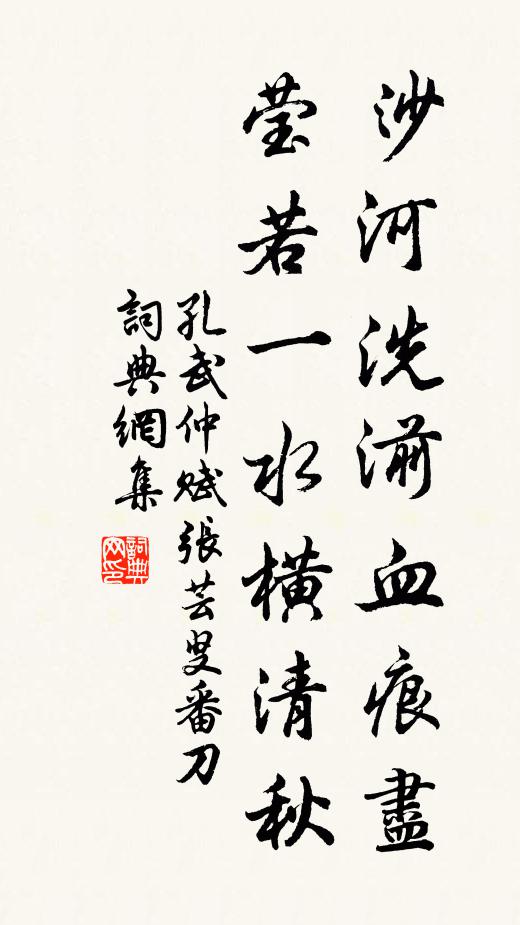 沙河洗湔血痕盡
莹若一水橫清秋
孔武仲 賦張芸叟番刀
詞典網集
詞典
网印